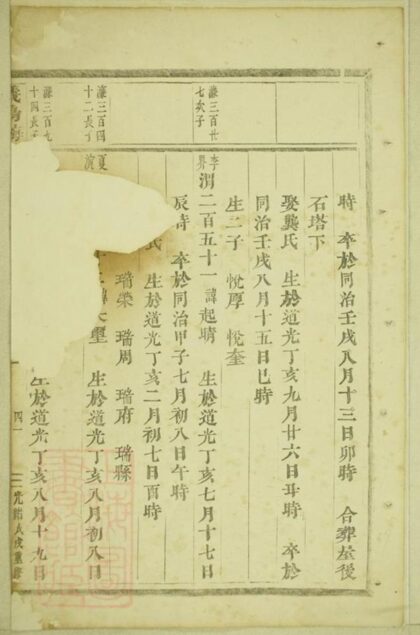 時 卒於同治壬戌八月十三日卯時 合葬屋後
石塔下
娶龔氏 生於道光丁亥九月廿六日丑時 卒於
同治壬戌八月十五日巳時
生二子 悅厚 悅奎
濂三百廿
七次子
渭二百五十一 諱起晴 生於道光丁亥七月十七日
辰時 卒於同治甲子七月初八日午時
氏 生於道光丁亥二月初七日酉時
瑞榮 瑞周 瑞府 瑞縣
濂三百四
十二長子
生於道光丁亥八月初八日
濂三百九
十四長子
生於道光丁亥八月十九日
四一
光緒戊戌重修